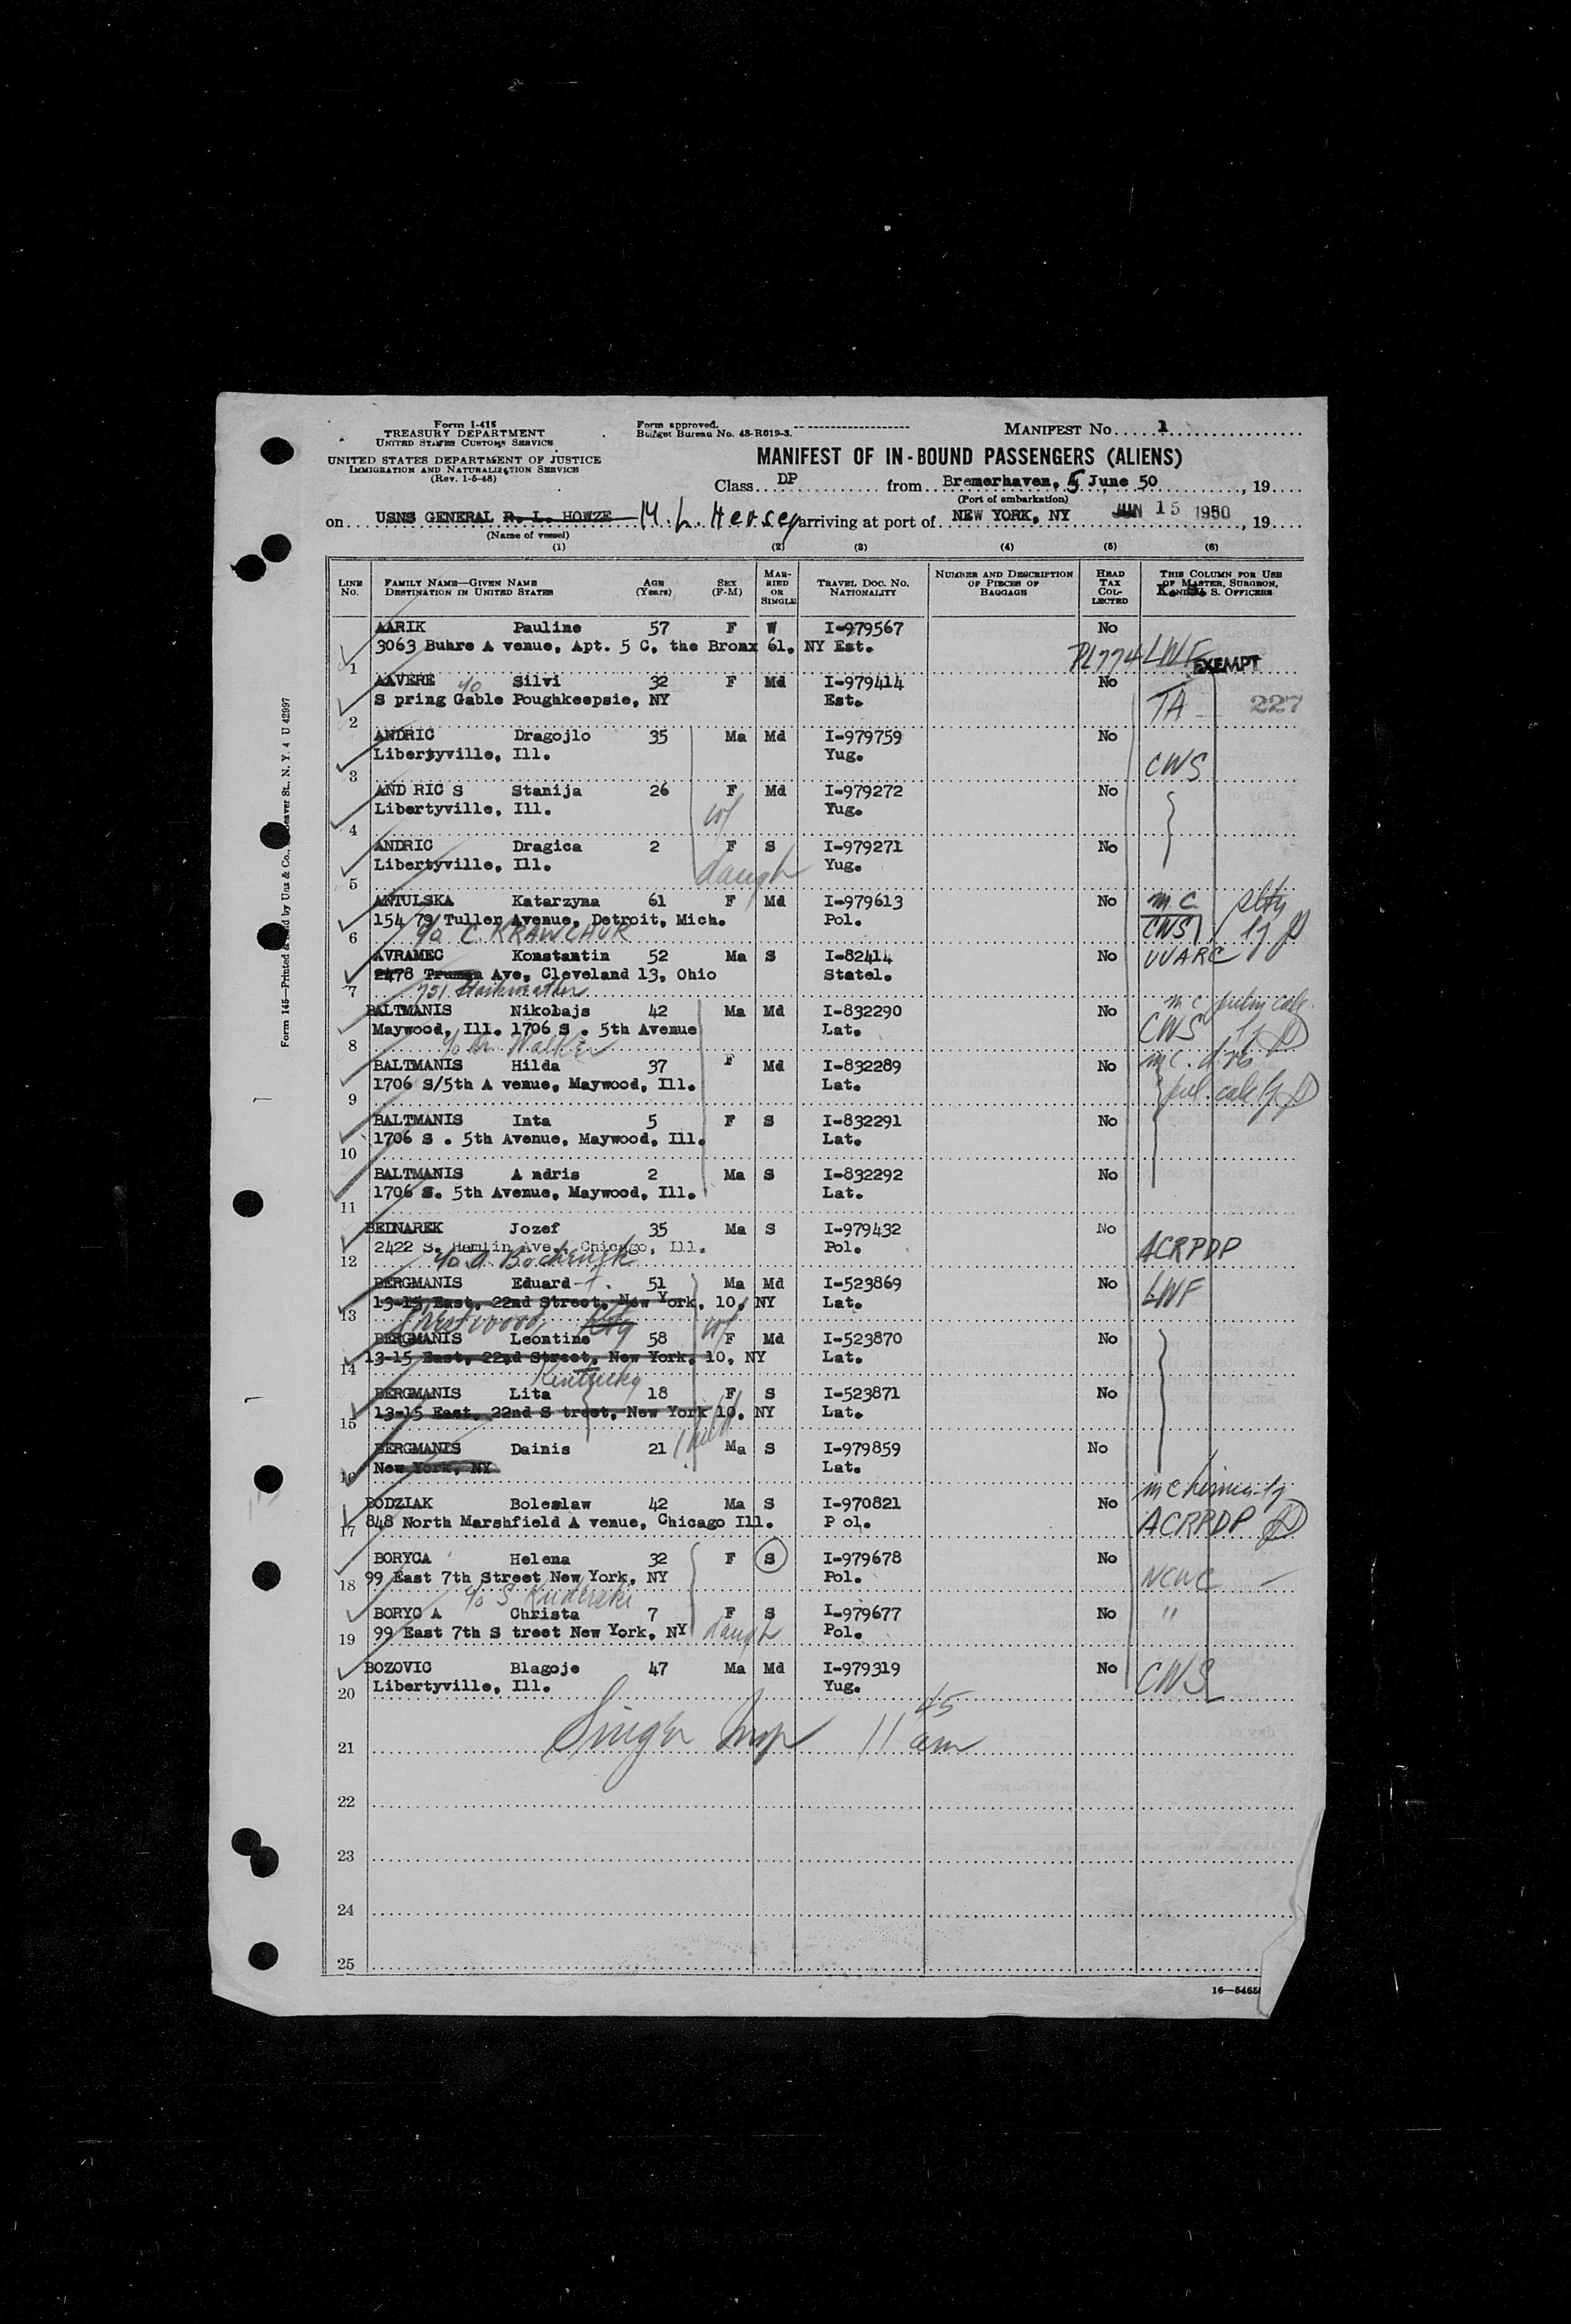 Form I-415
TREASURY DEPARTMENT
UNITED STATES CUSTOMS SERVICE
UNITED STATES DEPARTMENT OF JUSTICE
IMMIGRATION AND NATURALIZATION SERVICE
(Rev. 1-5-48)
Form approved.
Budget Bureau No. 43-R619-3.
MANIFEST No. 1
MANIFEST OF IN-BOUND PASSENGERS (ALIENS)
Class DP from Bremerhaven, 5 June 50, 19
(Port of embarkation)
on USNS GENERAL R. L. HOWZE M. L. Hersey arriving at port of NEW YORK, NY JUN 15 1950, 19
(Name of vessel)
(1) (2) (3) (4) (5) (6)
LINE No. FAMILY NAME—GIVEN NAME DESTINATION IN UNITED STATES AGE (Years) SEX (F-M) MARRIED OR SINGLE TRAVEL DOC. NO. NATIONALITY NUMBER AND DESCRIPTION OF PIECES OF BAGGAGE HEAD TAX COLLECTED THIS COLUMN FOR USE OF MASTER, SURGEON, AND U. S. OFFICERS
AARIK Pauline 57 F W I-979567 No
1 3063 Buhre A venue, Apt. 5 C, the Bronx 61, NY Est. PL774 LWF EXEMPT
AAVERE c/o Silvi 32 F Md I-979414 No
2 S pring Gable Poughkeepsie, NY Est. TA 227
ANDRIC Dragojlo 35 Ma Md I-979759 No
3 Libertyville, Ill. Yug. CWS
AND RIC S Stanija 26 F Md I-979272 No
4 Libertyville, Ill. Yug. wf
ANDRIC Dragica 2 F S I-979271 No
5 Libertyville, Ill. Yug. daugh
ANTULSKA Katarzyna 61 F Md I-979613 No m.c.
6 154 79 Tuller Avenue, Detroit, Mich. Pol. CWS
c/o C. KRAWCHUK
AVRAMEC Konstantin 52 Ma S I-82414 No UUARC
7 2478 Truman Ave, Cleveland 13, Ohio Statel.
751 Starkweather
BALTMANIS Nikolajs 42 Ma Md I-832290 No m c
8 Maywood, Ill. 1706 S . 5th Avenue Lat. CWS
c/o Mr Walker
BALTMANIS Hilda 37 F Md I-832289 No m c.
9 1706 S/5th A venue, Maywood, Ill. Lat.
BALTMANIS Inta 5 F S I-832291 No
10 1706 S . 5th Avenue, Maywood, Ill. Lat.
BALTMANIS A ndris 2 Ma S I-832292 No
11 1706 S. 5th Avenue, Maywood, Ill. Lat.
BEDNAREK Jozef 35 Ma S I-979432 No
12 2422 S. Hamlin Ave. Chicago, Ill. Pol. ACRPDP
c/o A. Bochenek
BERGMANIS Eduard 51 Ma Md I-523869 No
13 13-15 East, 22nd Street, New York, 10, NY Lat. LWF
Crestwood, Kty wf
BERGMANIS Leontine 58 F Md I-523870 No
14 13-15 East, 22nd Street, New York, 10, NY Lat.
Kentucky
BERGMANIS Lita 18 F S I-523871 No
15 13-15 East, 22nd S treet, New York 10, NY Lat.
BERGMANIS Dainis 21 Ma S I-979859 No
16 New York, NY Lat.
BODZIAK Boleslaw 42 Ma S I-970821 No m c hernia
17 848 North Marshfield A venue, Chicago Ill. P ol. ACRPDP
BORYCA Helena 32 F S I-979678 No
18 99 East 7th Street New York, NY Pol. NCWC
c/o S Kuderski
BORYC A Christa 7 F S I-979677 No "
19 99 East 7th S treet New York, NY daugh Pol.
BOZOVIC Blagoje 47 Ma Md I-979319 No
20 Libertyville, Ill. Yug. CWS
21 Singer Insp 11 45 am
22
23
24
25
16—5465
Form 145—Printed & Sold by Unz & Co., Beaver St., N. Y. 4 U 42997